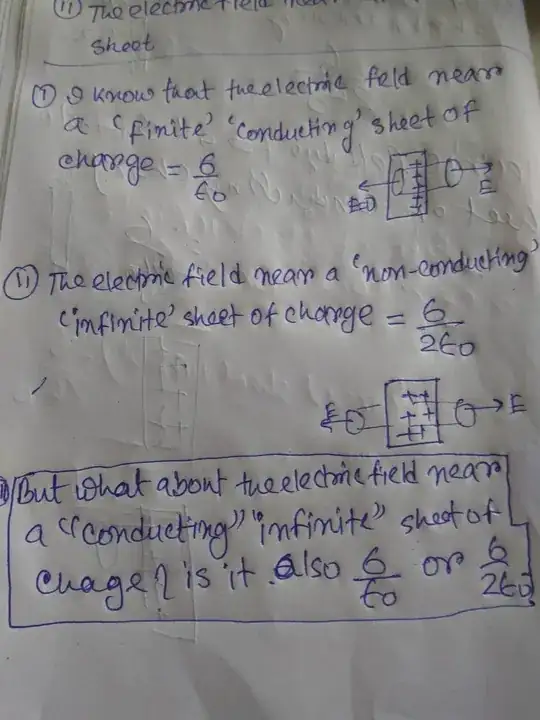 (ii) The electric field near
sheet
① I know that the electric feld near
a 'finite' 'conducting' sheet of
charge = σ/ε0
E
② The electric field near a 'non-conducting'
'infinite' sheet of charge = σ/2ε0
E E
But what about the electric field near
a "conducting" "infinite" sheet of
chage? is it also σ/ε0 or σ/2ε0